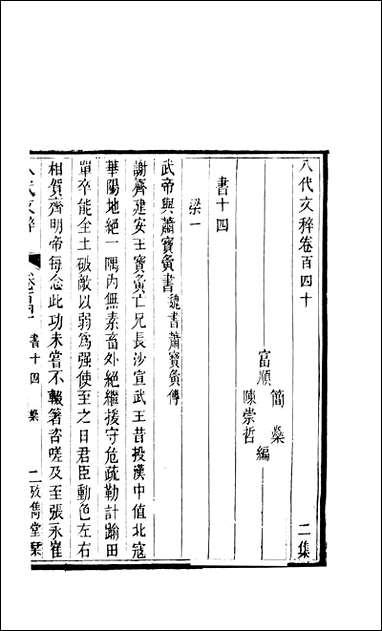 八代文稡卷百四十　二集
富順　簡燊
陳崇哲　編
書十四
梁一
武帝與蕭寶夤書魏書蕭寶夤傳
謝齊建安王寶夤亡兄長沙宣武王昔投漢中值北寇
華陽地絕一隅內無素畜外絕繼援守危疏勒計踰田
單卒能全土破敵以弱爲强使至之日君臣動色左右
相賀齊明帝每念此功未嘗不輟箸咨嗟及至張永崔
八代文稡　卷百四十　書十四　梁　一　攷雋堂栞